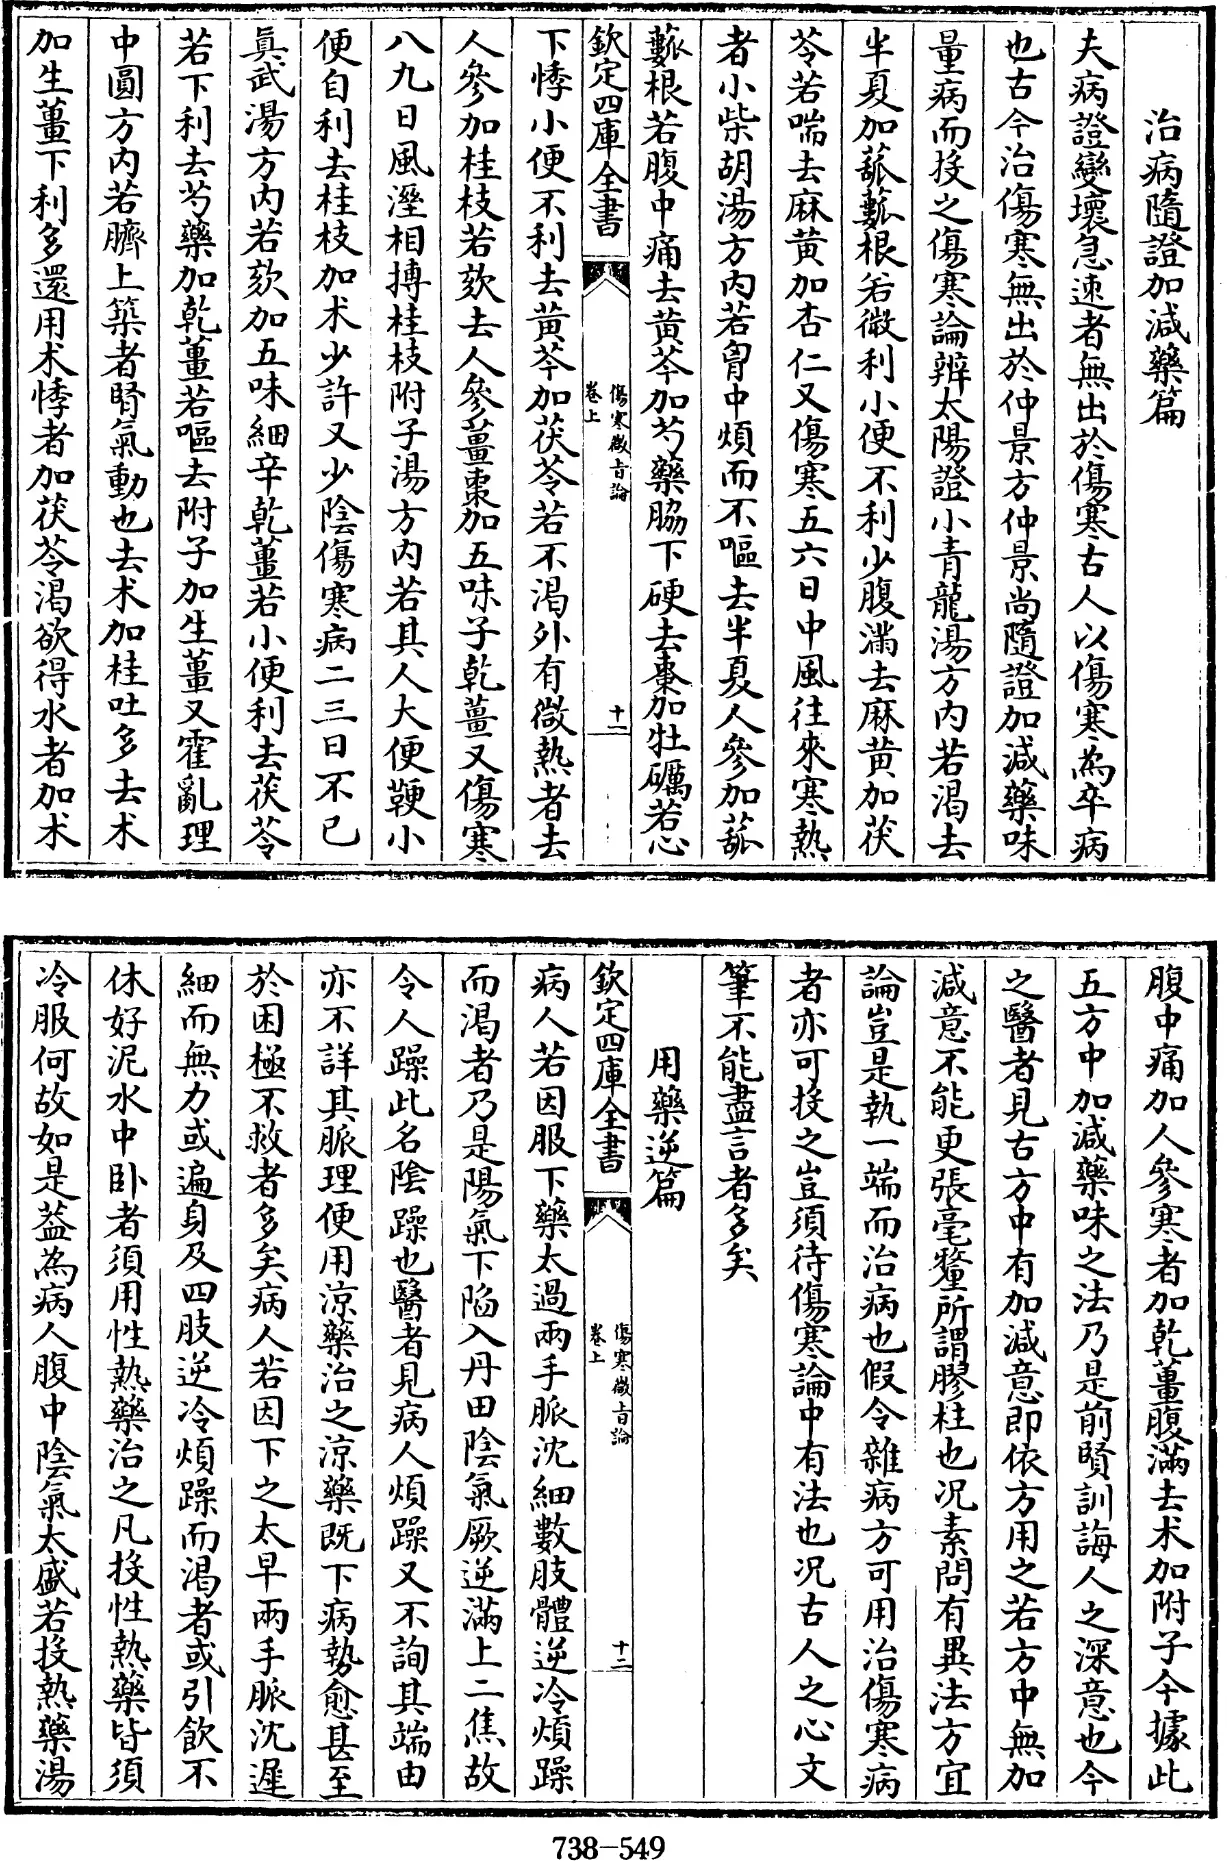 治病隨證加減藥篇
夫病證變壞急速者無出於傷寒古人以傷寒為卒病
也古今治傷寒無出於仲景方仲景尚隨證加減藥味
量病而投之傷寒論辨太陽證小青龍湯方内若渴去
半夏加蓏蓏根若微利小便不利少腹滿去麻黄加茯
苓若喘去麻黄加杏仁又傷寒五六日中風往來寒熱
者小柴胡湯方内若胷中煩而不嘔去半夏人參加蓏
蓏根若腹中痛去黄芩加芍藥脇下硬去棗加牡礪若心
欽定四庫全書
傷寒微旨論
卷上
十一
下悸小便不利去黄芩加茯苓若不渴外有微熱者去
人參加桂枝若欬去人參薑棗加五味子乾薑又傷寒
八九日風溼相搏桂枝附子湯方内若其人大便鞕小
便自利去桂枝加术少許又少陰傷寒病二三日不已
真武湯方内若欬加五味細辛乾薑若小便利去茯苓
若下利去芍藥加乾薑若嘔去附子加生薑又霍亂理
中圓方内若臍上築者腎氣動也去术加桂吐多去术
加生薑下利多還用术悸者加茯苓渴欲得水者加术
腹中痛加人參寒者加乾薑腹滿去术加附子今據此
五方中加減藥味之法乃是前賢訓誨人之深意也今
之醫者見古方中有加減意即依方用之若方中無加
減意不能更張毫釐所謂膠柱也况素問有異法方宜
論豈是執一端而治病也假令雜病方可用治傷寒病
者亦可投之豈須待傷寒論中有法也况古人之心文
筆不能盡言者多矣
用藥逆篇
欽定四庫全書
傷寒微旨論
卷上
十二
病人若因服下藥太過兩手脈沈細數肢體逆冷煩躁
而渴者乃是陽氣下陷入丹田陰氣厥逆滿上二焦故
令人躁此名陰躁也醫者見病人煩躁又不詢其端由
亦不詳其脈理便用涼藥治之涼藥既下病勢愈甚至
於困極不救者多矣病人若因下之太早兩手脈沈遲
細而無力或遍身及四肢逆冷煩躁而渴者或引飲不
休好泥水中卧者須用性熱藥治之凡投性熱藥皆須
冷服何故如是葢為病人腹中陰氣太盛若投熱藥湯
738-549